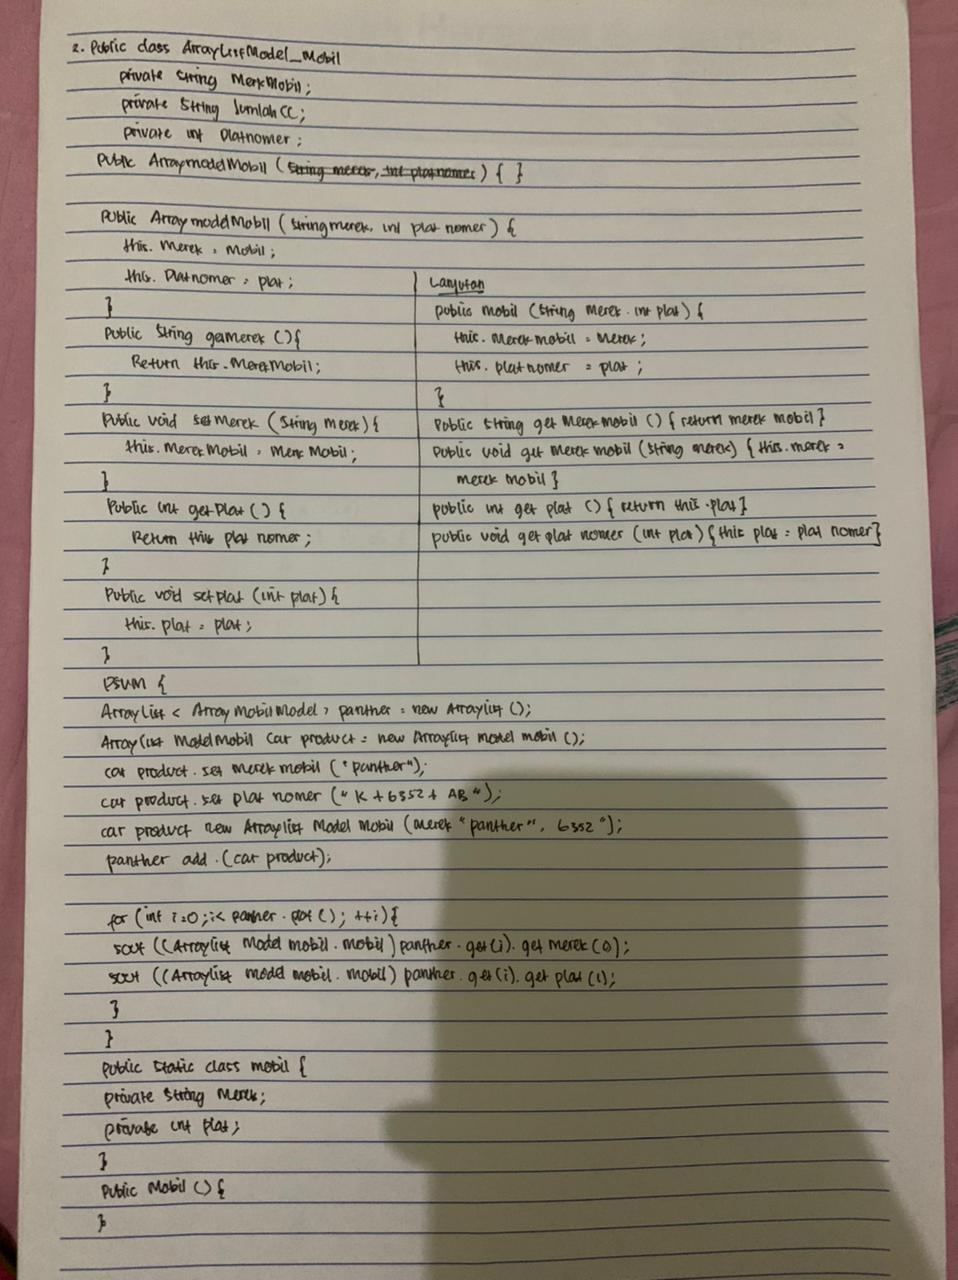 2. Public class ArrayListModel_Mobil
private String MerkMobil;
private String Jumlah CC;
private int Platnomer;
Public ArraymodelMobil (String merek, int platnomer) { }
Public ArraymodelMobil (String merek, int plat nomer) {
this. Merek = Mobil;
this. Platnomer = plat;
}
Public String getmerek () {
Return this. MerekMobil;
}
Public void setMerek (String merek) {
this. MerekMobil = Merk Mobil;
}
Public int getPlat () {
Return this plat nomer;
}
Public void setplat (int plat) {
this. plat = plat;
}
Lanjutan
public mobil (String Merek. int plat) {
this. Merek mobil = Merek;
this. plat nomer = plat ;
}
Public String get Merek mobil () { return merek mobil }
Public void get Merek mobil (String merek) { this. merek =
merek mobil }
public int get plat () { return this .plat }
public void get plat nomer (int plat) { this plat = plat nomer }
PSVM {
ArrayList < Array Mobil Model > panther = new Arraylist ();
Arraylist ModelMobil Car product = new Arraylist model mobil ();
car product . set merek mobil ("panther");
car product . set plat nomer (" K + 6352 + AB ");
car product new Arraylist Model Mobil (merek "panther", 6352 ");
panther add . (car product);
for (int i=0 ; i< panther . plat () ; ++i) {
sout ((Arraylist Model mobil . mobil) panther . get (i) . get merek (0);
sout ((Arraylist model mobil . mobil) panther . get (i) . get plat (1);
}
}
Public Static class mobil {
private String Merek;
private int plat;
}
Public Mobil () {
}